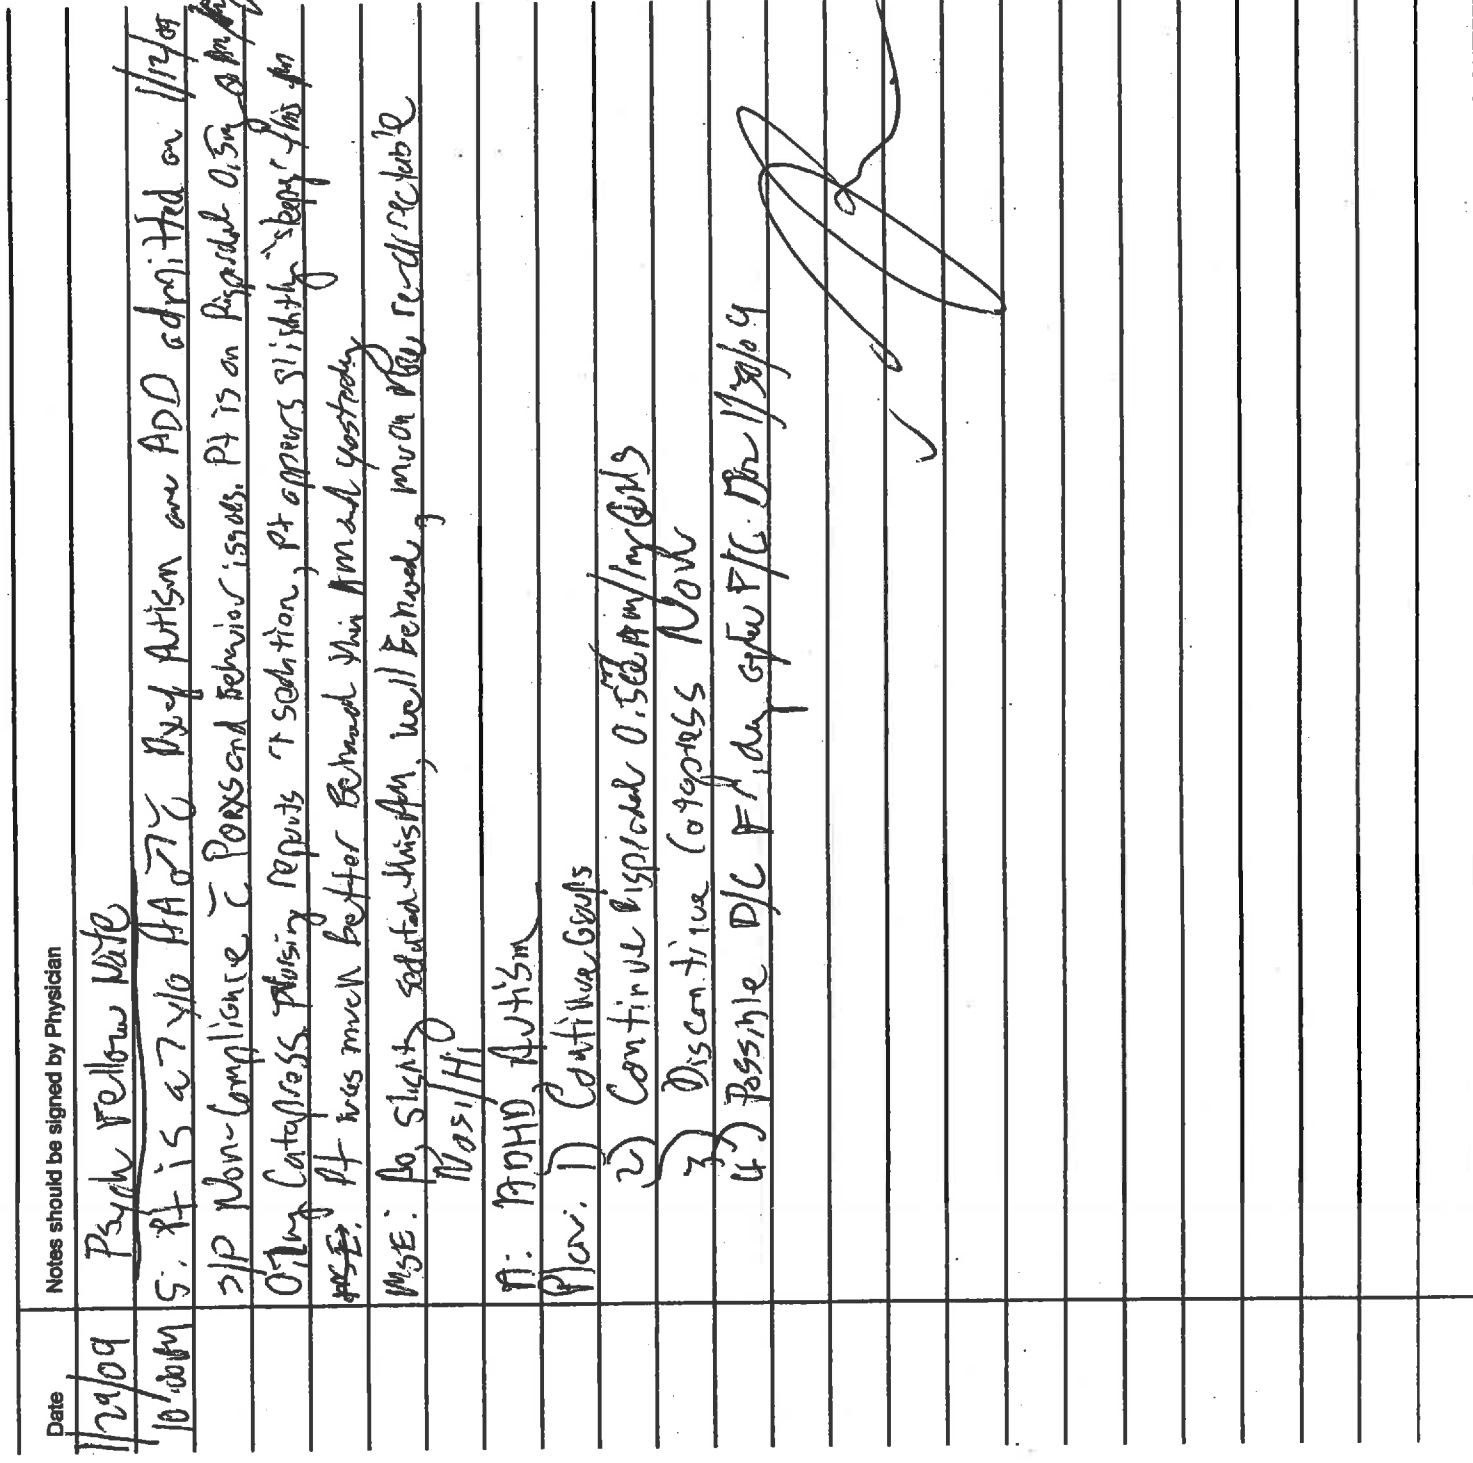 Date Notes should be signed by Physician
1/29/09 Psych Fellow Note
10:00AM S: Pt is a 7 y/o AA ♂ c̄ Dx of Autism and ADD admitted on 1/12/09
S/P Non-Compliance c̄ PO RXS and Behavior issues. Pt is on Risperdal 0.5mg
0.1mg Catapress. Nursing reports ↑ sedation, Pt appears slightly "sleepy" this Am
Pt was much better Behaved this Am and yesterday
MSE: Ao, slight sedated this AM, well Behaved, much more re-directable
No SI/HI
A: ADHD, Autism
Plan: 1) Continue Groups
2) Continue Risperdal 0.5mg AM/1mg QHS
3) Discontinue Catapress
4) Possible D/C Friday after F/C. on 1/30/09